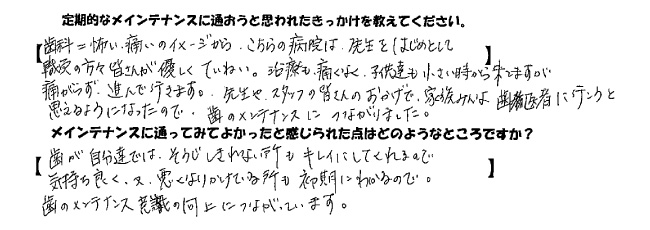 定期的なメインテナンスに通おうと思われたきっかけを教えてください。
【歯科=怖い、痛いのイメージから、こちらの病院は、先生をはじめとして】
職員の方々皆さんが優しくていねい。治療も痛くなく、子供達も小さい時から来ますが
痛がらず、進んで行きます。先生や、スタッフの皆さんのおかげで、家族みんな歯医者に行こうと
思えるようになったので、歯のメンテナンスにつながりました。
メインテナンスに通ってみてよかったと感じられた点はどのようなところですか？
【歯が自分達では、そうじしきれない所もキレイにしてくれるので】
気持ち良く、又、悪くなりかけている所も初期にわかるので。
歯のメンテナンス意識の向上につながっています。